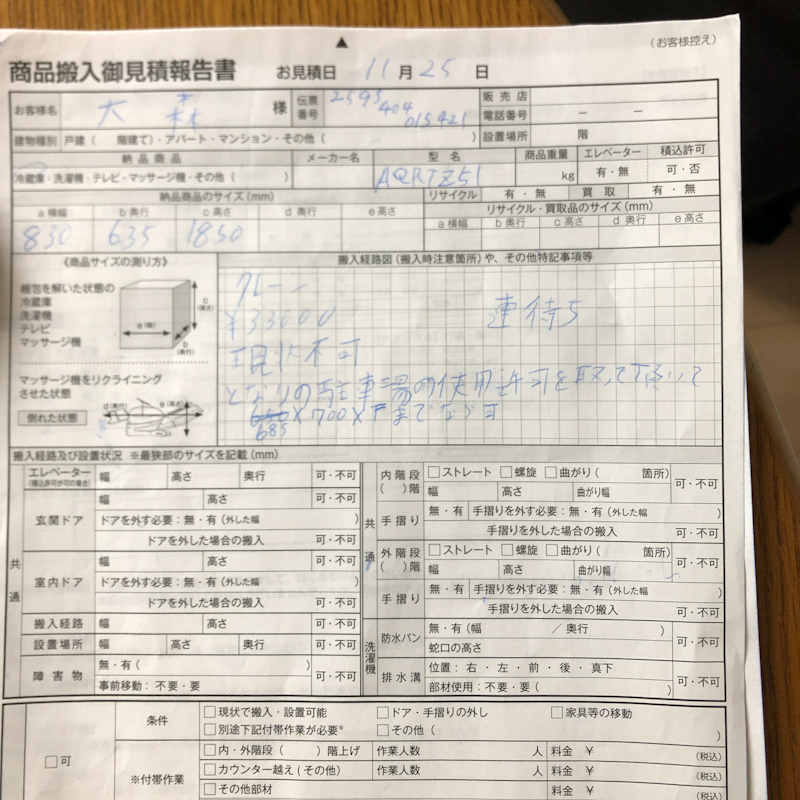 (お客様控え)
商品搬入御見積報告書 お見積日 11月25日
お客様名 大森 様 伝票番号 2593 404 015421 販売店
電話番号 － －
建物種別 戸建( 階建て)・アパート・マンション・その他( ) 設置場所 階
納品商品 メーカー名 型名 商品重量 エレベーター 積込許可
冷蔵庫・洗濯機・テレビ・マッサージ機・その他( ) AQRTZ51 kg 有・無 可・否
納品商品のサイズ(mm) リサイクル 有・無 買取 有・無
リサイクル・買取品のサイズ(mm)
a横幅 b奥行 c高さ d奥行 e高さ a横幅 b奥行 c高さ d奥行 e高さ
830 635 1850
《商品サイズの測り方》 搬入経路図(搬入時注意箇所)や、その他特記事項等
梱包を解いた状態の
冷蔵庫
洗濯機
テレビ
マッサージ機
a(幅) b(奥行) c(高さ)
マッサージ機をリクライニング
させた状態
倒れた状態
d(奥行) e(高さ)
クレーン
¥33000 連待ち
現状不可
となりの駐車場の使用許可を取って頂いて
650×700×下までなら可
685
搬入経路及び設置状況 ※最狭部のサイズを記載(mm)
エレベーター(積込許可が可の場合) 幅 高さ 奥行 可・不可
玄関ドア 幅 高さ 可・不可
ドアを外す必要:無・有(外した幅 )
ドアを外した場合の搬入 可・不可
共通
室内ドア 幅 高さ 可・不可
ドアを外す必要:無・有(外した幅 )
ドアを外した場合の搬入 可・不可
搬入経路 幅 高さ 可・不可
設置場所 幅 高さ 奥行 可・不可
障害物 無・有( ) 可・不可
事前移動:不要・要
共通
内階段( )階 □ストレート □螺旋 □曲がり( 箇所) 可・不可
幅 高さ 曲がり幅
手摺り 無・有 手摺りを外す必要:無・有(外した幅 )
手摺りを外した場合の搬入 可・不可
外階段( )階 □ストレート □螺旋 □曲がり( 箇所) 可・不可
幅 高さ 曲がり幅
手摺り 無・有 手摺りを外す必要:無・有(外した幅 )
手摺りを外した場合の搬入 可・不可
洗濯機
防水パン 無・有(幅 ／奥行 ) 可・不可
蛇口の高さ
排水溝 位置:右・左・前・後・真下 可・不可
部材使用:不要・要( )
□可
条件 □現状で搬入・設置可能 □ドア・手摺りの外し □家具等の移動
□別途下記付帯作業が必要※ □その他( )
※付帯作業 □内・外階段( )階上げ 作業人数 人 料金 ¥ (税込)
□カウンター越え(その他) 作業人数 人 料金 ¥ (税込)
□その他部材 料金 ¥ (税込)